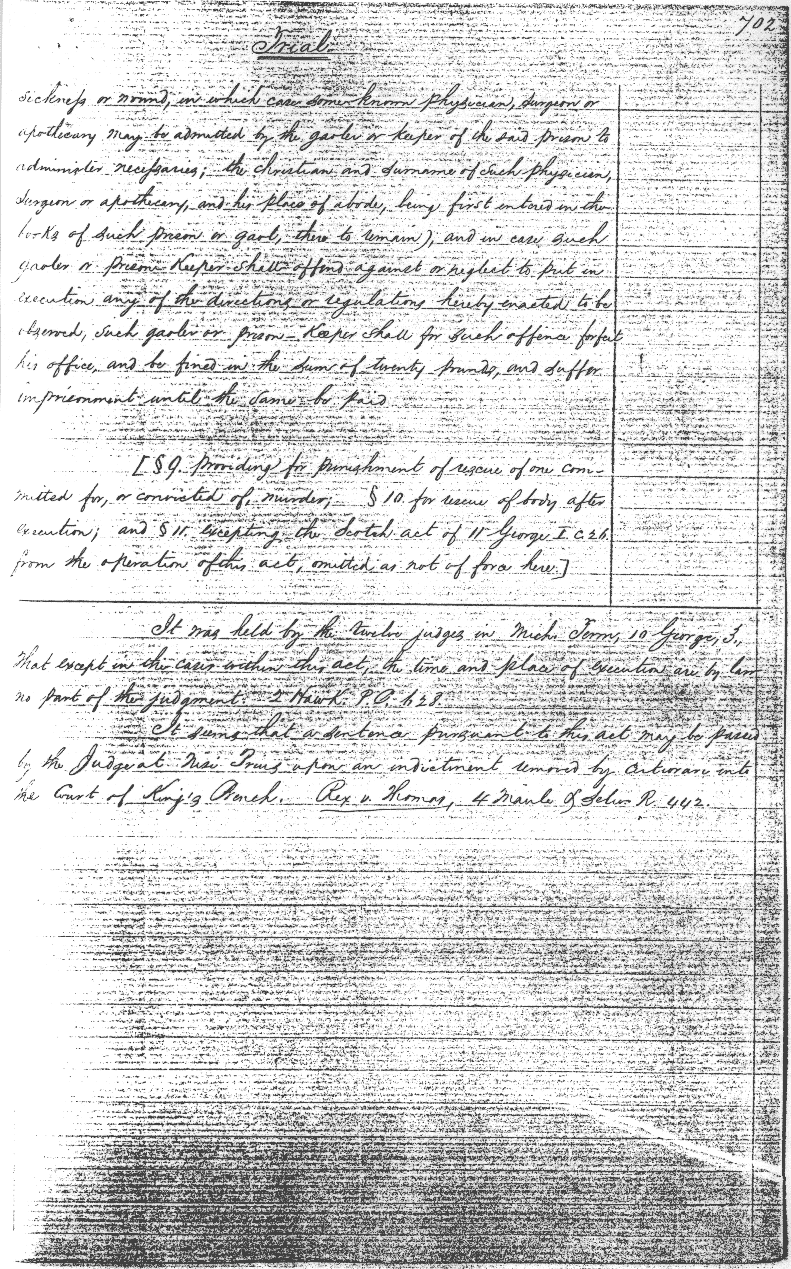 702
Trial
sickness or wound, in which case some known physician, surgeon or
apothecary may be admitted by the gaoler or keeper of the said prison to
administer necessaries; the christian and surname of such physician,
surgeon or apothecary, and his place of abode, being first entered in the
books of such prison or gaol, there to remain), and in case such
gaoler or prison-keeper shall offend against or neglect to put in
execution any of the directions or regulations hereby enacted to be
observed, such gaoler or prison-keeper shall for such offence forfeit
his office, and be fined in the sum of twenty pounds, and suffer
imprisonment until the same be paid
[§ 9. providing for punishment of rescue of one com-
mitted for, or convicted of, murder; § 10. for rescue of body after
execution; and § 11, excepting the Scotch act of 11 George I. c. 26.
from the operation of this act, omitted as not of force here.]
It was held by the twelve judges in Mich. Term, 10 George, 3.,
that except in the cases within this act, the time and place of execution are by law
no part of the judgment. 2 Hawk. P.C. 628.
It seems that a sentence pursuant to this act may be passed
by the Judge at Nisi Prius upon an indictment removed by certiorari into
the Court of King's Bench. Rex v. Thomas, 4 Maule & Selw. R. 442.